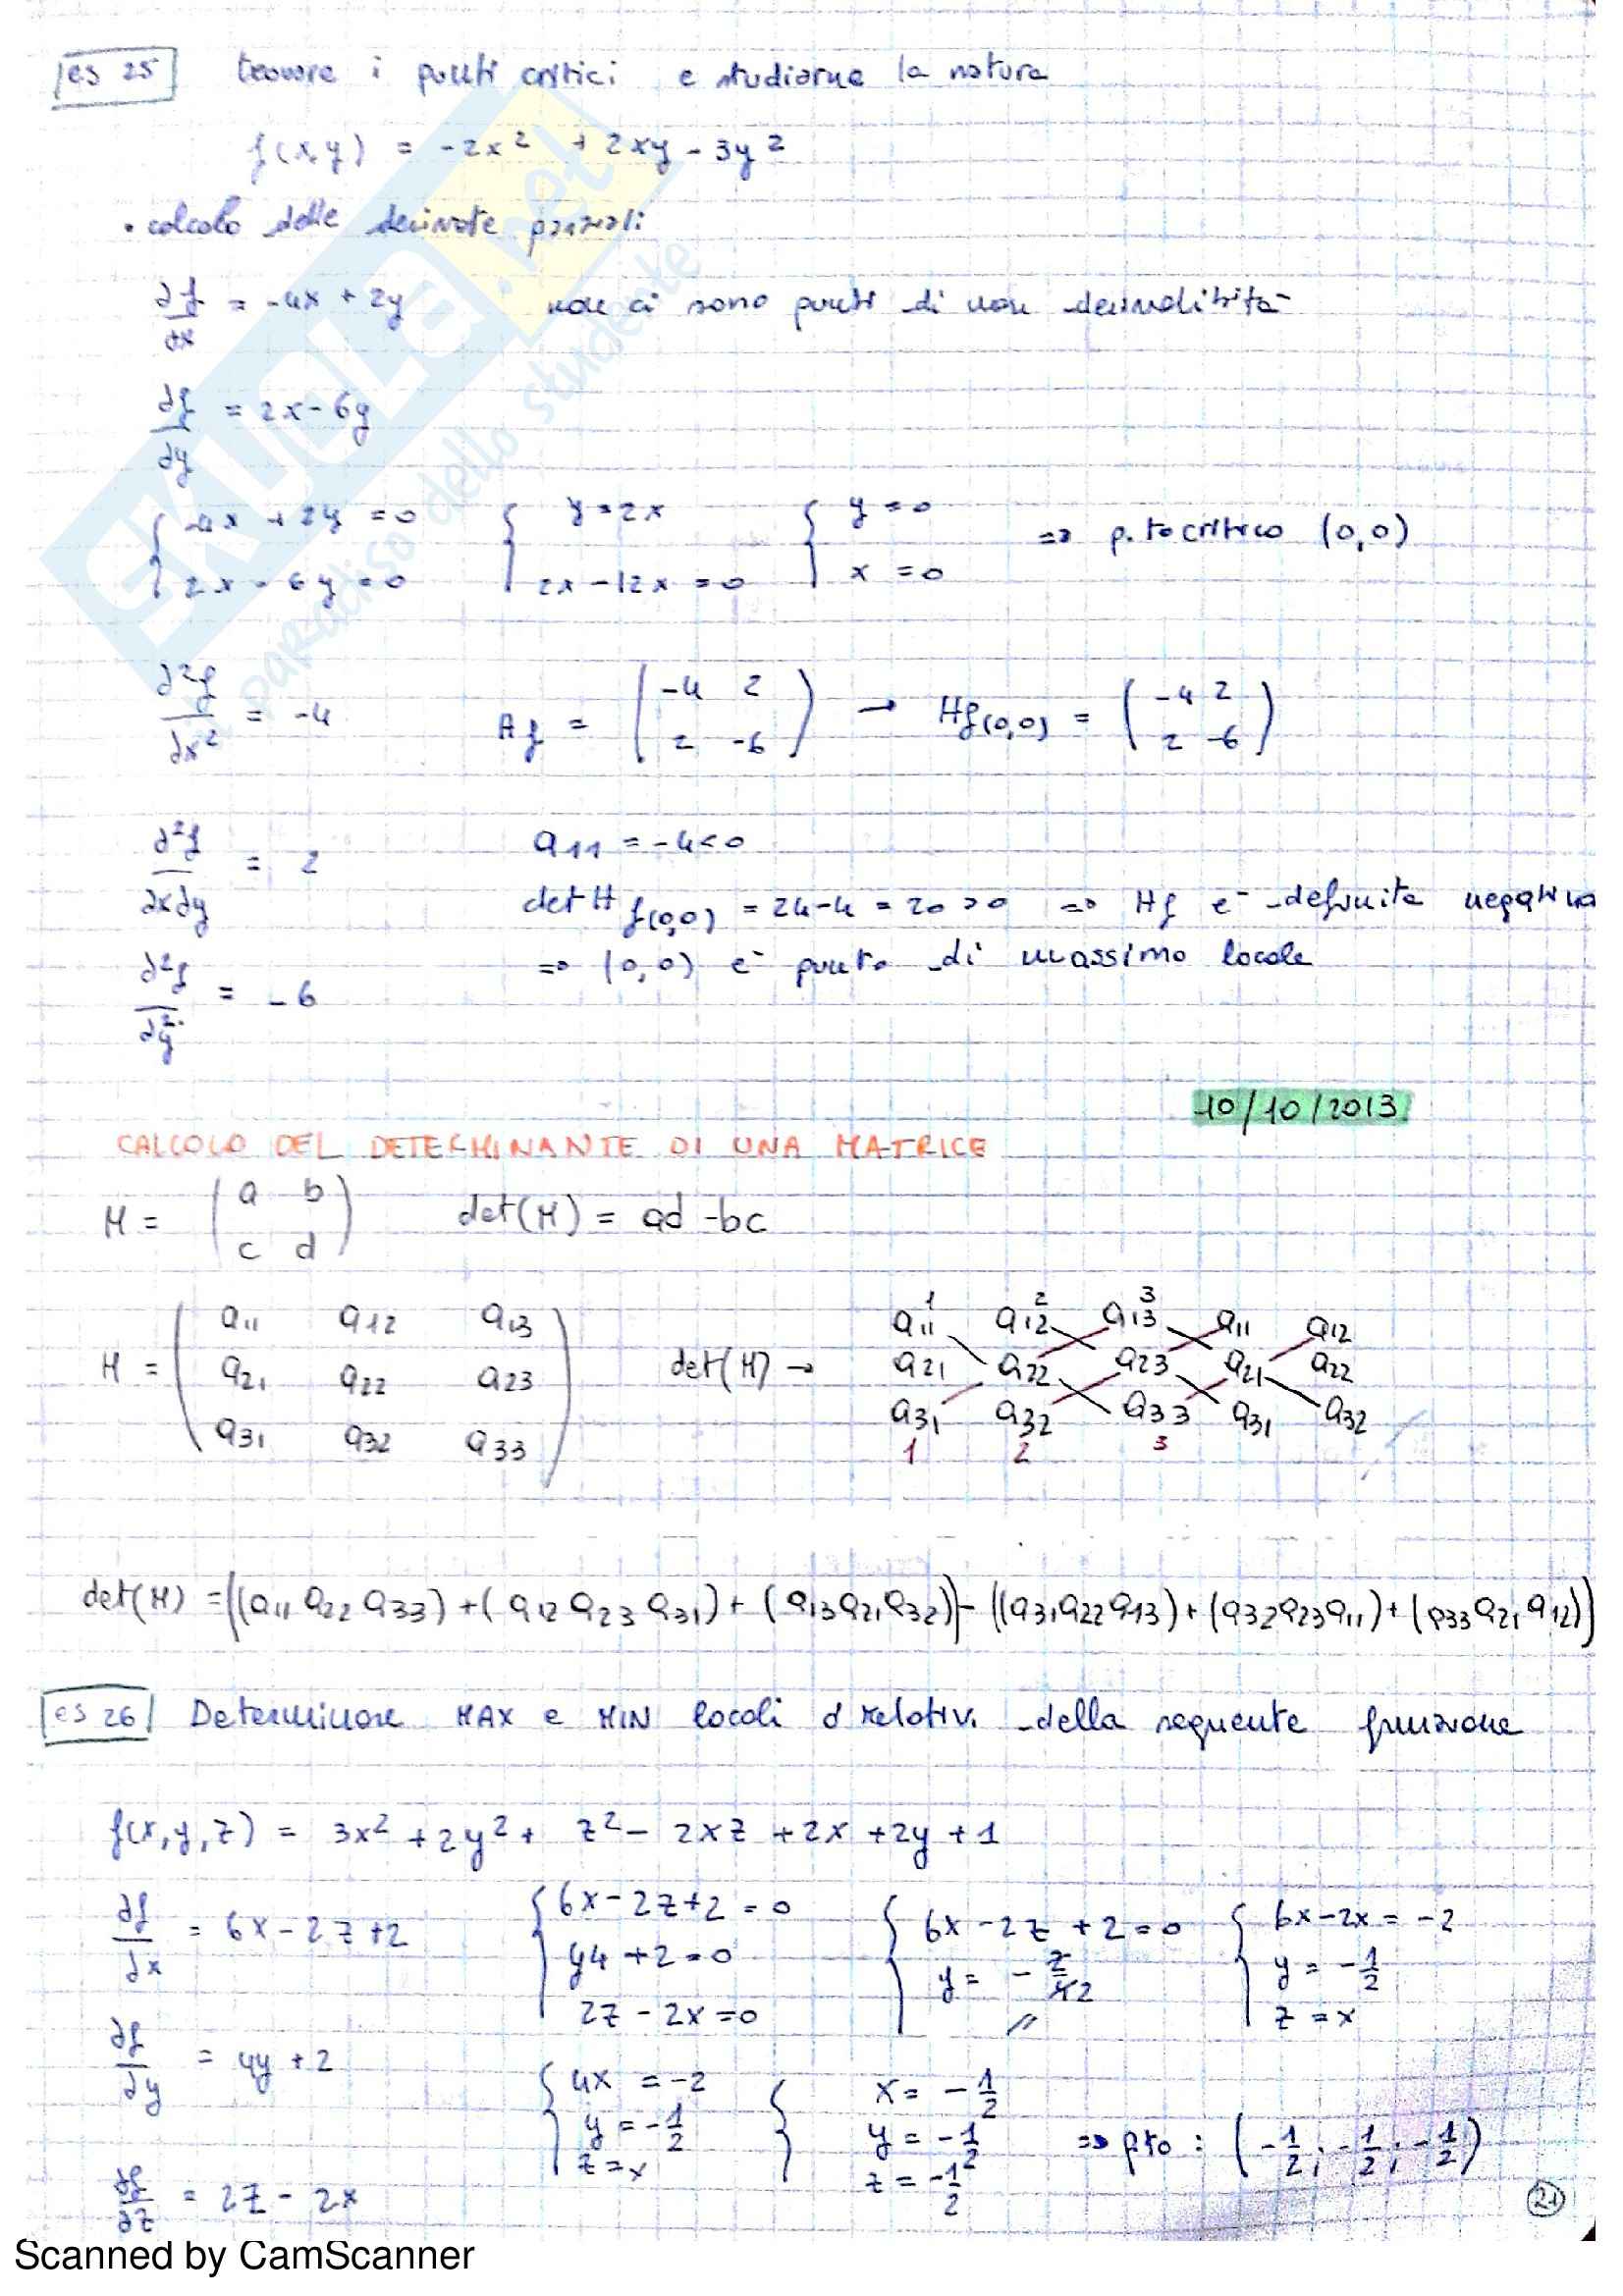 es 25 trovare i punti critici e studiarne la natura
f(x,y) = -2x² + 2xy - 3y²
• calcolo delle derivate parziali
∂f/∂x = -4x + 2y non ci sono punti di non derivabilità
∂f/∂y = 2x - 6y
{ -4x + 2y = 0 { y = 2x { y = 0 => p.to critico (0,0)
{ 2x - 6y = 0 { 2x - 12x = 0 { x = 0
∂²f/∂x² = -4 Hf = ( -4 2 / 2 -6 ) → Hf(0,0) = ( -4 2 / 2 -6 )
∂²f/∂x∂y = 2 a11 = -4 < 0
det H f(0,0) = 24-4 = 20 > 0 => Hf è definita negativa
=> (0,0) è punto di massimo locale
∂²f/∂y² = -6
10/10/2013
CALCOLO DEL DETERMINANTE DI UNA MATRICE
M = ( a b / c d ) det(M) = ad - bc
1 2 3
a11 a12 a13 a11 a12 a13 a11 a12
M = a21 a22 a23 det(M) → a21 a22 a23 a21 a22
a31 a32 a33 a31 a32 a33 a31 a32
1 2 3
det(M) = ((a11 a22 a33) + (a12 a23 a31) + (a13 a21 a32)) - ((a31 a22 a13) + (a32 a23 a11) + (a33 a21 a12))
es 26 Determinare MAX e MIN locali o relativi della seguente funzione
f(x,y,z) = 3x² + 2y² + z² - 2xz + 2x + 2y + 1
∂f/∂x = 6x - 2z + 2 { 6x - 2z + 2 = 0 { 6x - 2z + 2 = 0 { 6x - 2x = -2
{ y4 + 2 = 0 { y = - 2/42 { y = - 1/2
{ 2z - 2x = 0 { // { z = x
∂f/∂y = 4y + 2 { 4x = -2 { x = - 1/2
{ y = - 1/2 { y = - 1/2 => pto : ( - 1/2 ; - 1/2 ; - 1/2 )
{ z = x { z = - 1/2
∂f/∂z = 2z - 2x
21
Scanned by CamScanner
SKUOLA.net
paradiso dello studente